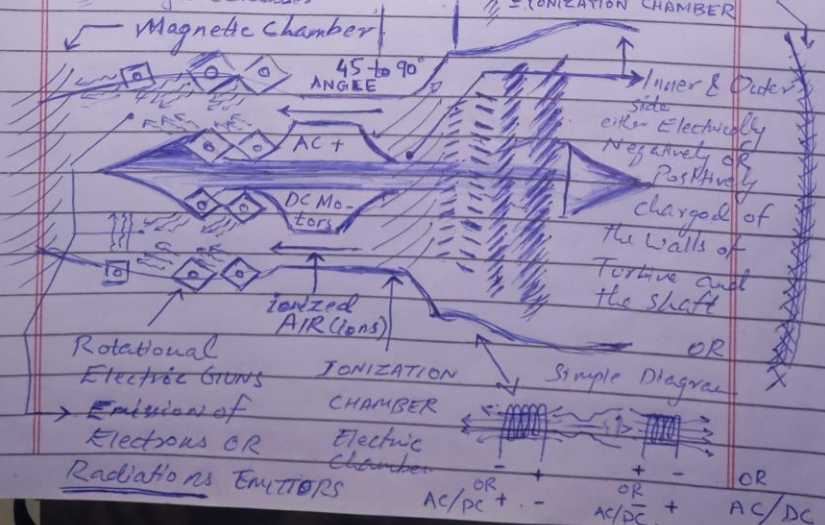 = IONIZATION CHAMBER
Magnetic Chamber
45 to 90°
ANGEE
AC +
DC Mo-
tors
Inner & Outer
side
either Electrically
Negatively OR
Positively
charged of
the walls of
Turbine and
the shaft
ionized
AIR (ions)
Rotational
Electric GUNS
Emission of
Electrons OR
Radiations EMITTORS
IONIZATION
CHAMBER
Electric
Chamber
OR
Simple Diagram
- +
OR
AC/DC + -
+ -
OR
AC/DC - +
OR
AC/DC